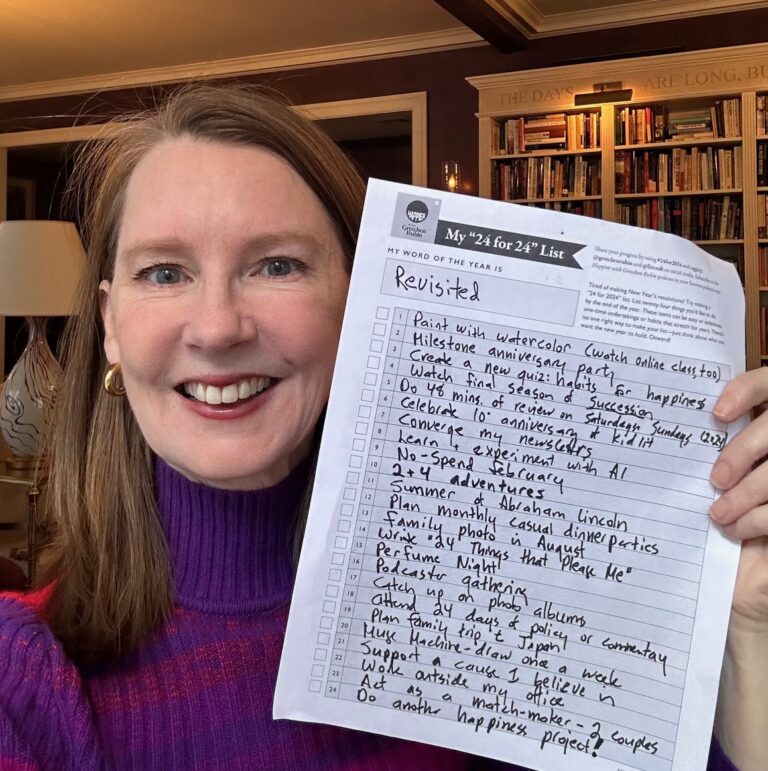 THE DAYS ARE LONG, BU
HAPPIER
Gretchen Rubin
My "24 for 24" List
MY WORD OF THE YEAR IS
Revisited
Share your progress by using #24for2024 and tagging
@gretchenrubin and @lizcraft on social media. Subscribe to the
Happier with Gretchen Rubin podcast
Tired of making New Year's resolutions? Try making a
"24 for 24" list. List twenty-four things you'd like to do
by the end of the year. These items can be easy or ambitious,
one-time undertakings or habits that stretch for years. There's
no one right way to make your list—just think about what you
want the new year to hold. Onward!
1 Paint with watercolor (watch online class, too)
2 Milestone anniversary party
3 Create a new quiz: habits for happiness
4 Watch final season of Succession
5 Do 48 mins. of review on Saturdays, Sundays (2024)
6 Celebrate 10th anniversary of kidlit
7 Converge my newsletters
8 Learn + experiment with AI
9 No-Spend February
10 2 + 4 adventures
11 Summer of Abraham Lincoln
12 Plan monthly casual dinner parties
13 Family photo in August
14 Write "24 Things that Please Me"
15 Perfume Night
16 Podcaster gathering
17 Catch up on photo albums
18 Attend 24 days of policy or commentary
19 Plan family trip to Japan
20 Muse Machine - draw once a week
21 Support a cause I believe in
22 Work outside my office
23 Act as a match-maker - 2 couples
24 Do another happiness project!